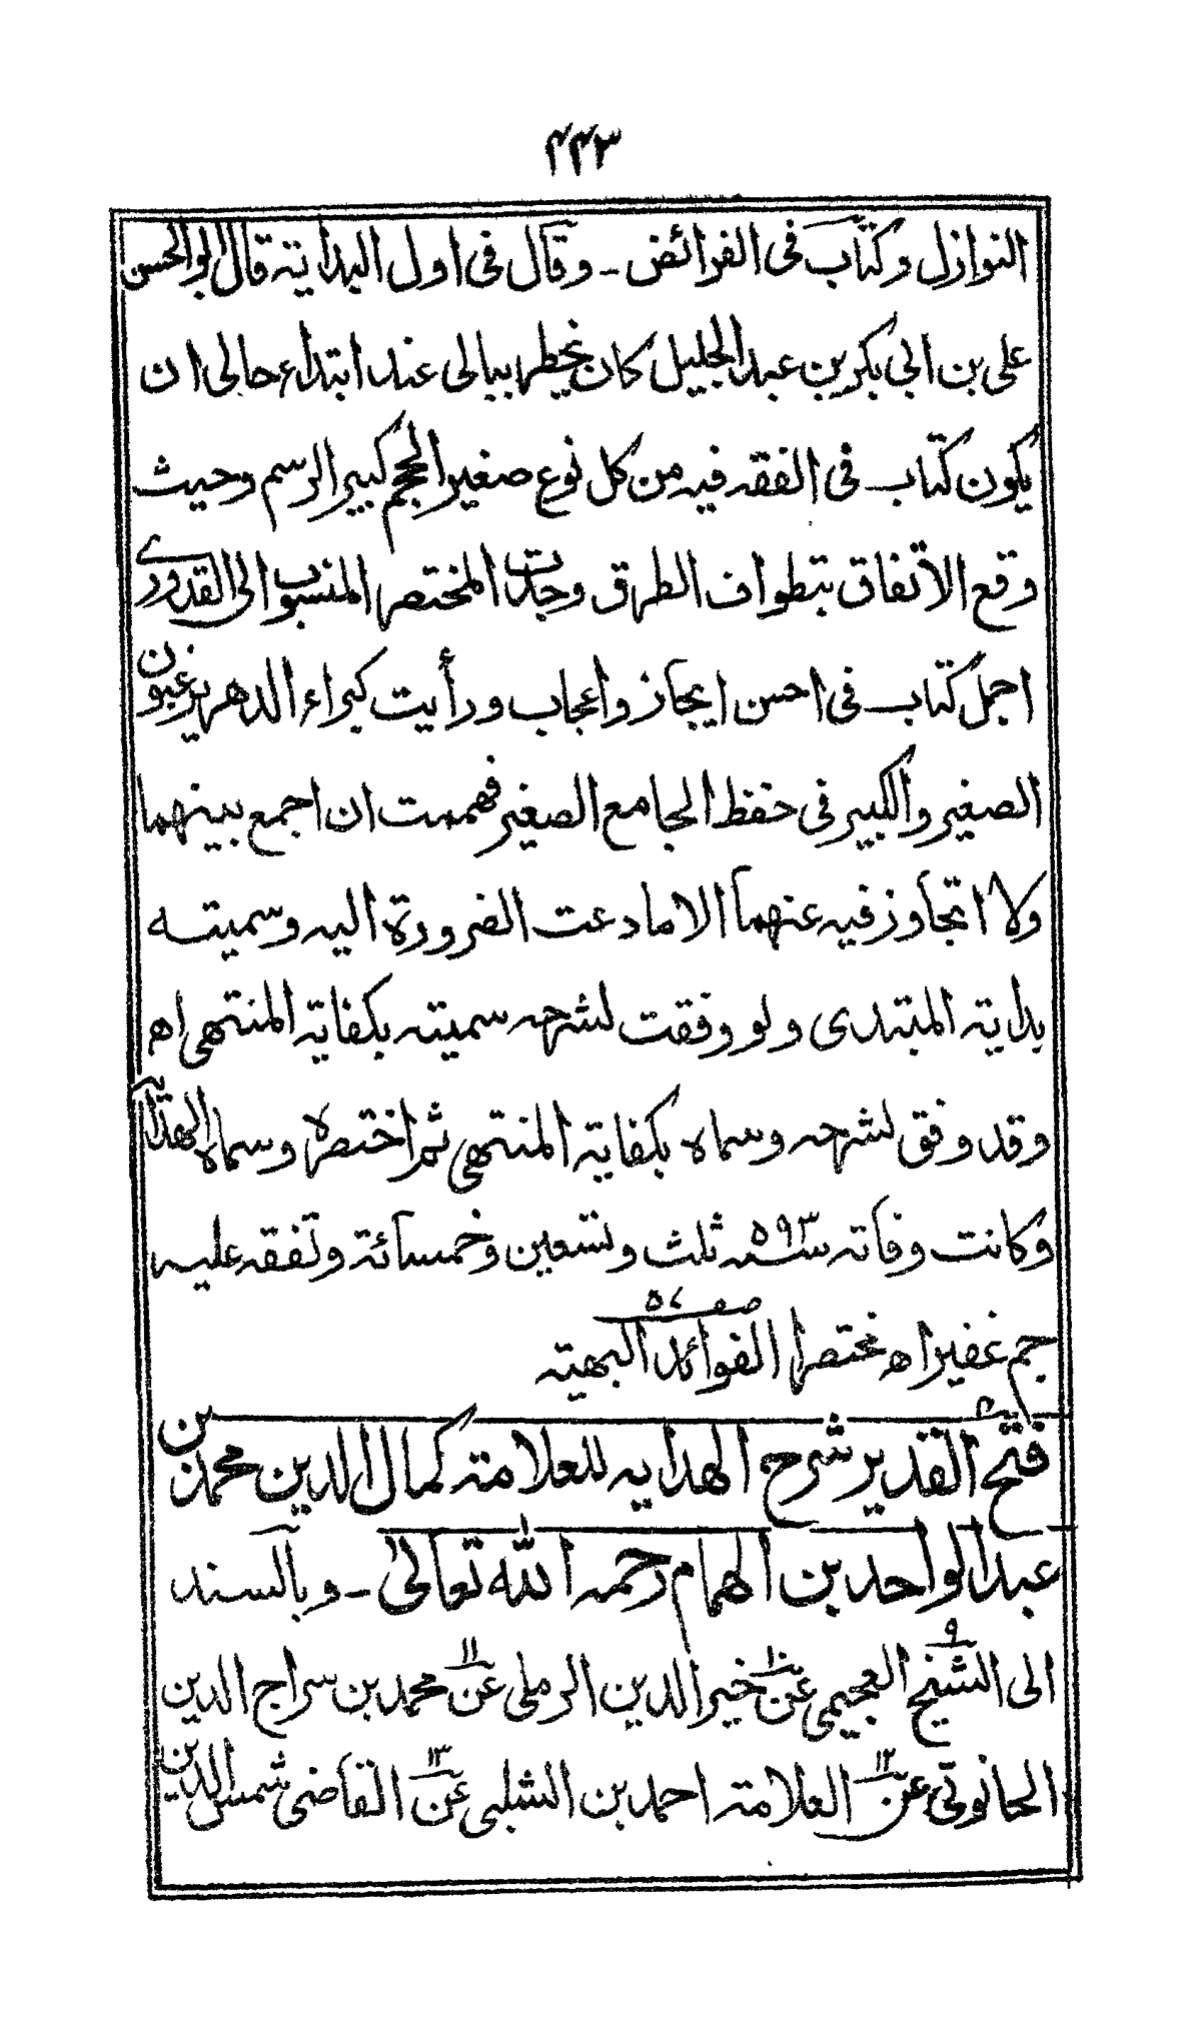 ۴۴۳
النوازل وكتاب فى الفرائض ـ وقال فى اول البداية قال ابو الحسن
على بن ابى بكر بن عبد الجليل كان يخطر ببالى عند ابتداء حالى ان
يكون كتاب فى الفقه فيه من كل نوع صغير الحجم كبير الرسم وحيث
وقع الاتفاق بتطواف الطرق وجدت المختصر المنسوب الى القدورى
اجمل كتاب فى احسن ايجاز واعجاب ورأيت كبراء الدهر يرغبون
الصغير والكبير فى حفظ الجامع الصغير فهممت ان اجمع بينهما
ولا اتجاوز فيه عنهما الا مادعت الضرورة اليه وسميته
بداية المبتدى ولو وفقت لشرحه سميته بكفاية المنتهى اه
وقد وفق لشرحه وسماه بكفاية المنتهى ثم اختصره وسماه الهداية
وكانت وفاته سنه ۵۹۳ ثلث وتسعين وخمسائة وتفقه عليه
جم غفير اه مختصرا الفوائد البهية صفـ ۵۷
فتح القدير شرح الهدايه للعلامة كمال الدين محمد بن
عبد الواحد بن الهمام رحمه الله تعالىٰ ـ وبالسند
الى الشيخ ۹ العجيمى عن ۱۰ خير الدين الرملى عن ۱۱ محمد بن سراج الدين
الحانوتى عن ۱۲ العلامة احمد بن الشلبى عن ۱۳ القاضى شمس الدين